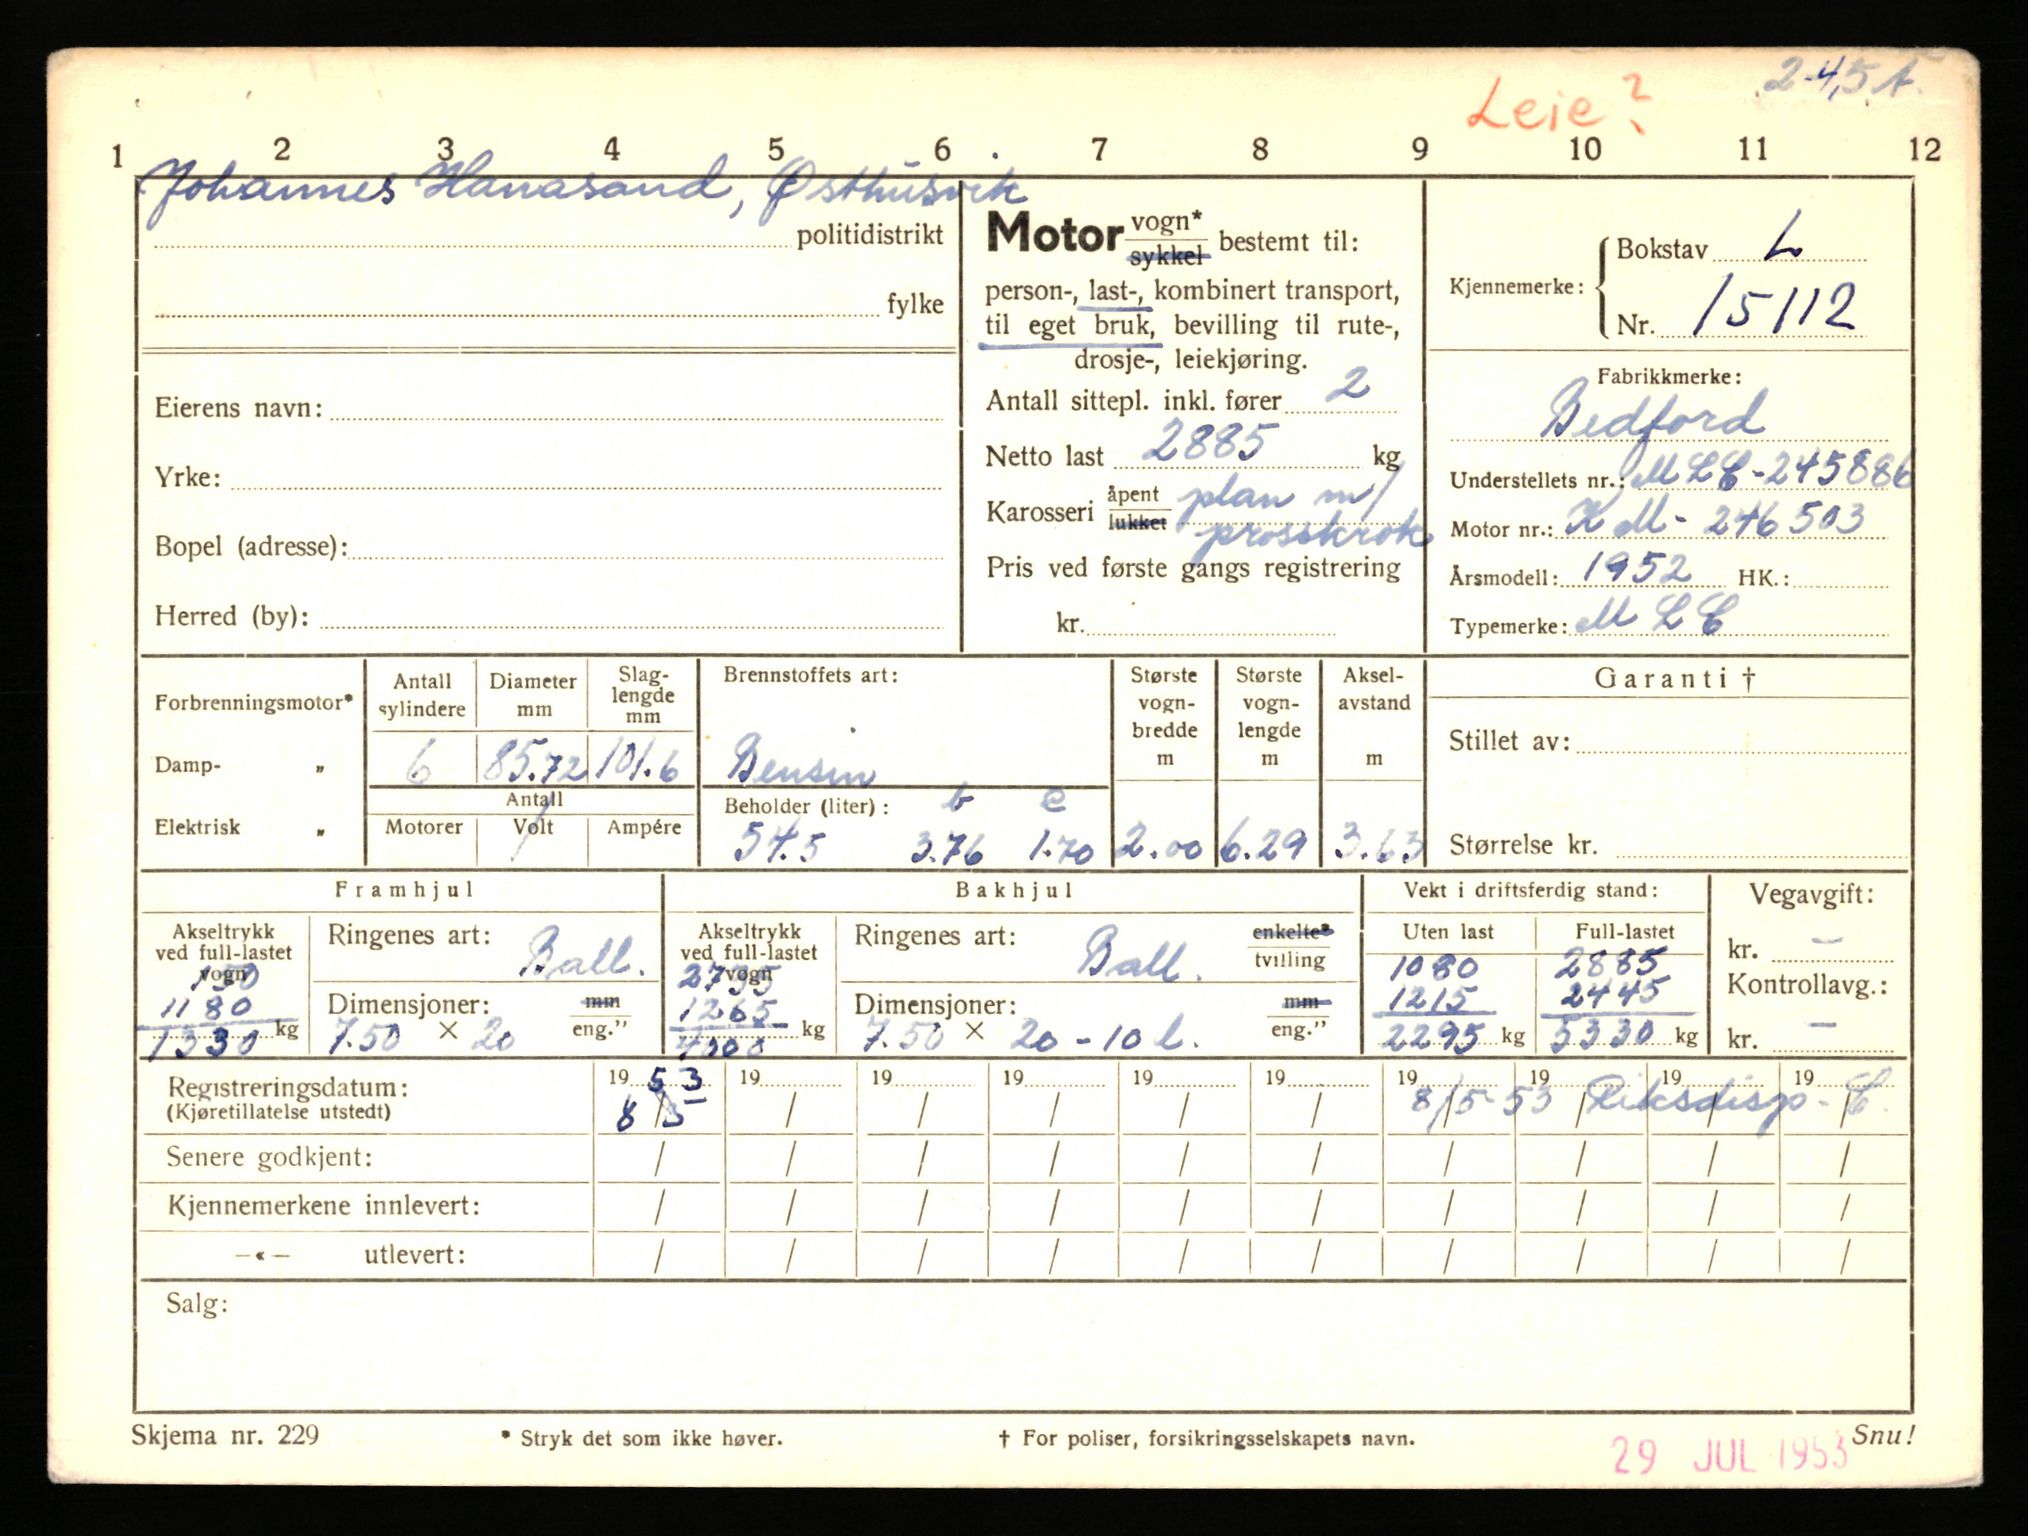 2-4,5 t.
Leie?
1 2 3 4 5 6 7 8 9 10 11 12
Johannes Hanasand, Østhusvik
politidistrikt
fylke
Eierens navn:
Yrke:
Bopel (adresse):
Herred (by):
Motor vogn* sykkel bestemt til:
person-, last-, kombinert transport,
til eget bruk, bevilling til rute-,
drosje-, leiekjøring.
Antall sittepl. inkl. fører 2
Netto last 2885 kg
Karosseri åpent lukket plan m/
prosskrok
Pris ved første gangs registrering
kr.
Kjennemerke: Bokstav L
Nr. 15112
Fabrikkmerke:
Bedford
Understellets nr.: MLC-245886
Motor nr.: KM-246503
Årsmodell: 1952 HK.:
Typemerke: MLC
Forbrenningsmotor*
Damp- „
Elektrisk „
Antall sylindere Diameter mm Slag-lengde mm
6 85.72 101.6
Antall
Motorer Volt Ampére
Brennstoffets art:
Bensin
Beholder (liter): b c
54.5 3.76 1.70
Største vogn-bredde m
2.00
Største vogn-lengde m
6.29
Aksel-avstand m
3.63
Garanti †
Stillet av:
Størrelse kr.
Framhjul
Akseltrykk ved full-lastet vogn
150
1180
1330 kg
Ringenes art: Ball.
Dimensjoner: mm eng."
7.50 × 20
Bakhjul
Akseltrykk ved full-lastet vogn
2735
1265
4000 kg
Ringenes art: Ball. enkelte* tvilling
Dimensjoner: mm eng."
7.50 × 20 - 10 l.
Vekt i driftsferdig stand:
Uten last Full-lastet
1080 2885
1215 2445
2295 kg 5330 kg
Vegavgift:
kr. —
Kontrollavg.:
kr. —
Registreringsdatum: 19 53 19 19 19 19 19 19 19 19 19
(Kjøretillatelse utstedt) 8/5 / / / / / 8/5-53 Riksdisp - C.
Senere godkjent: / / / / / / / / / /
Kjennemerkene innlevert: / / / / / / / / / /
—«— utlevert: / / / / / / / / / /
Salg:
Skjema nr. 229 * Stryk det som ikke høver. † For poliser, forsikringsselskapets navn. Snu!
29 JUL 1953